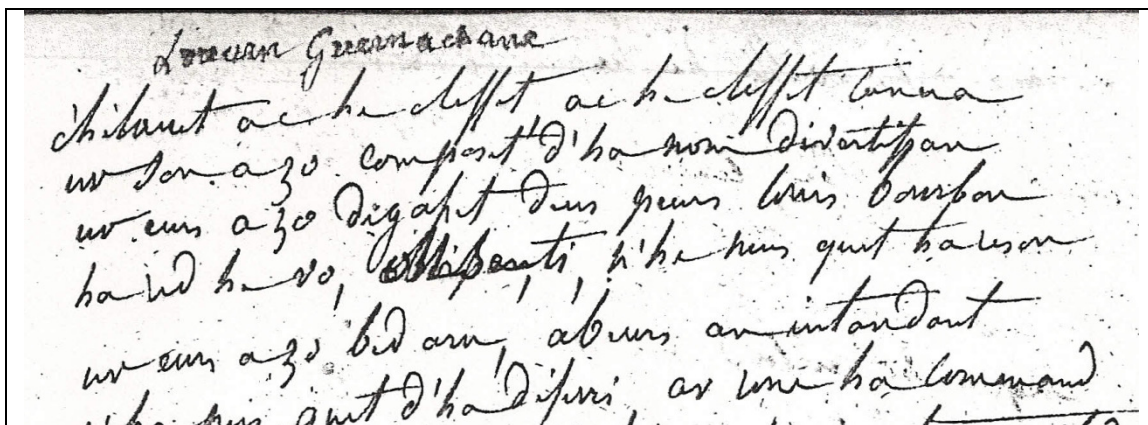 Louarn Guernachanne
chilaouet ac he cleffet ac he cleffet canna
ur son a zo composet d'ha nom divertissan
ur eurs a zo digasset deus peurs louis bourbon
ha he vo, n'he neus quet ha reson
ur eurs a zo bed arru, abeurs an intandant
n'he neus quet d'ha ar roue ha command